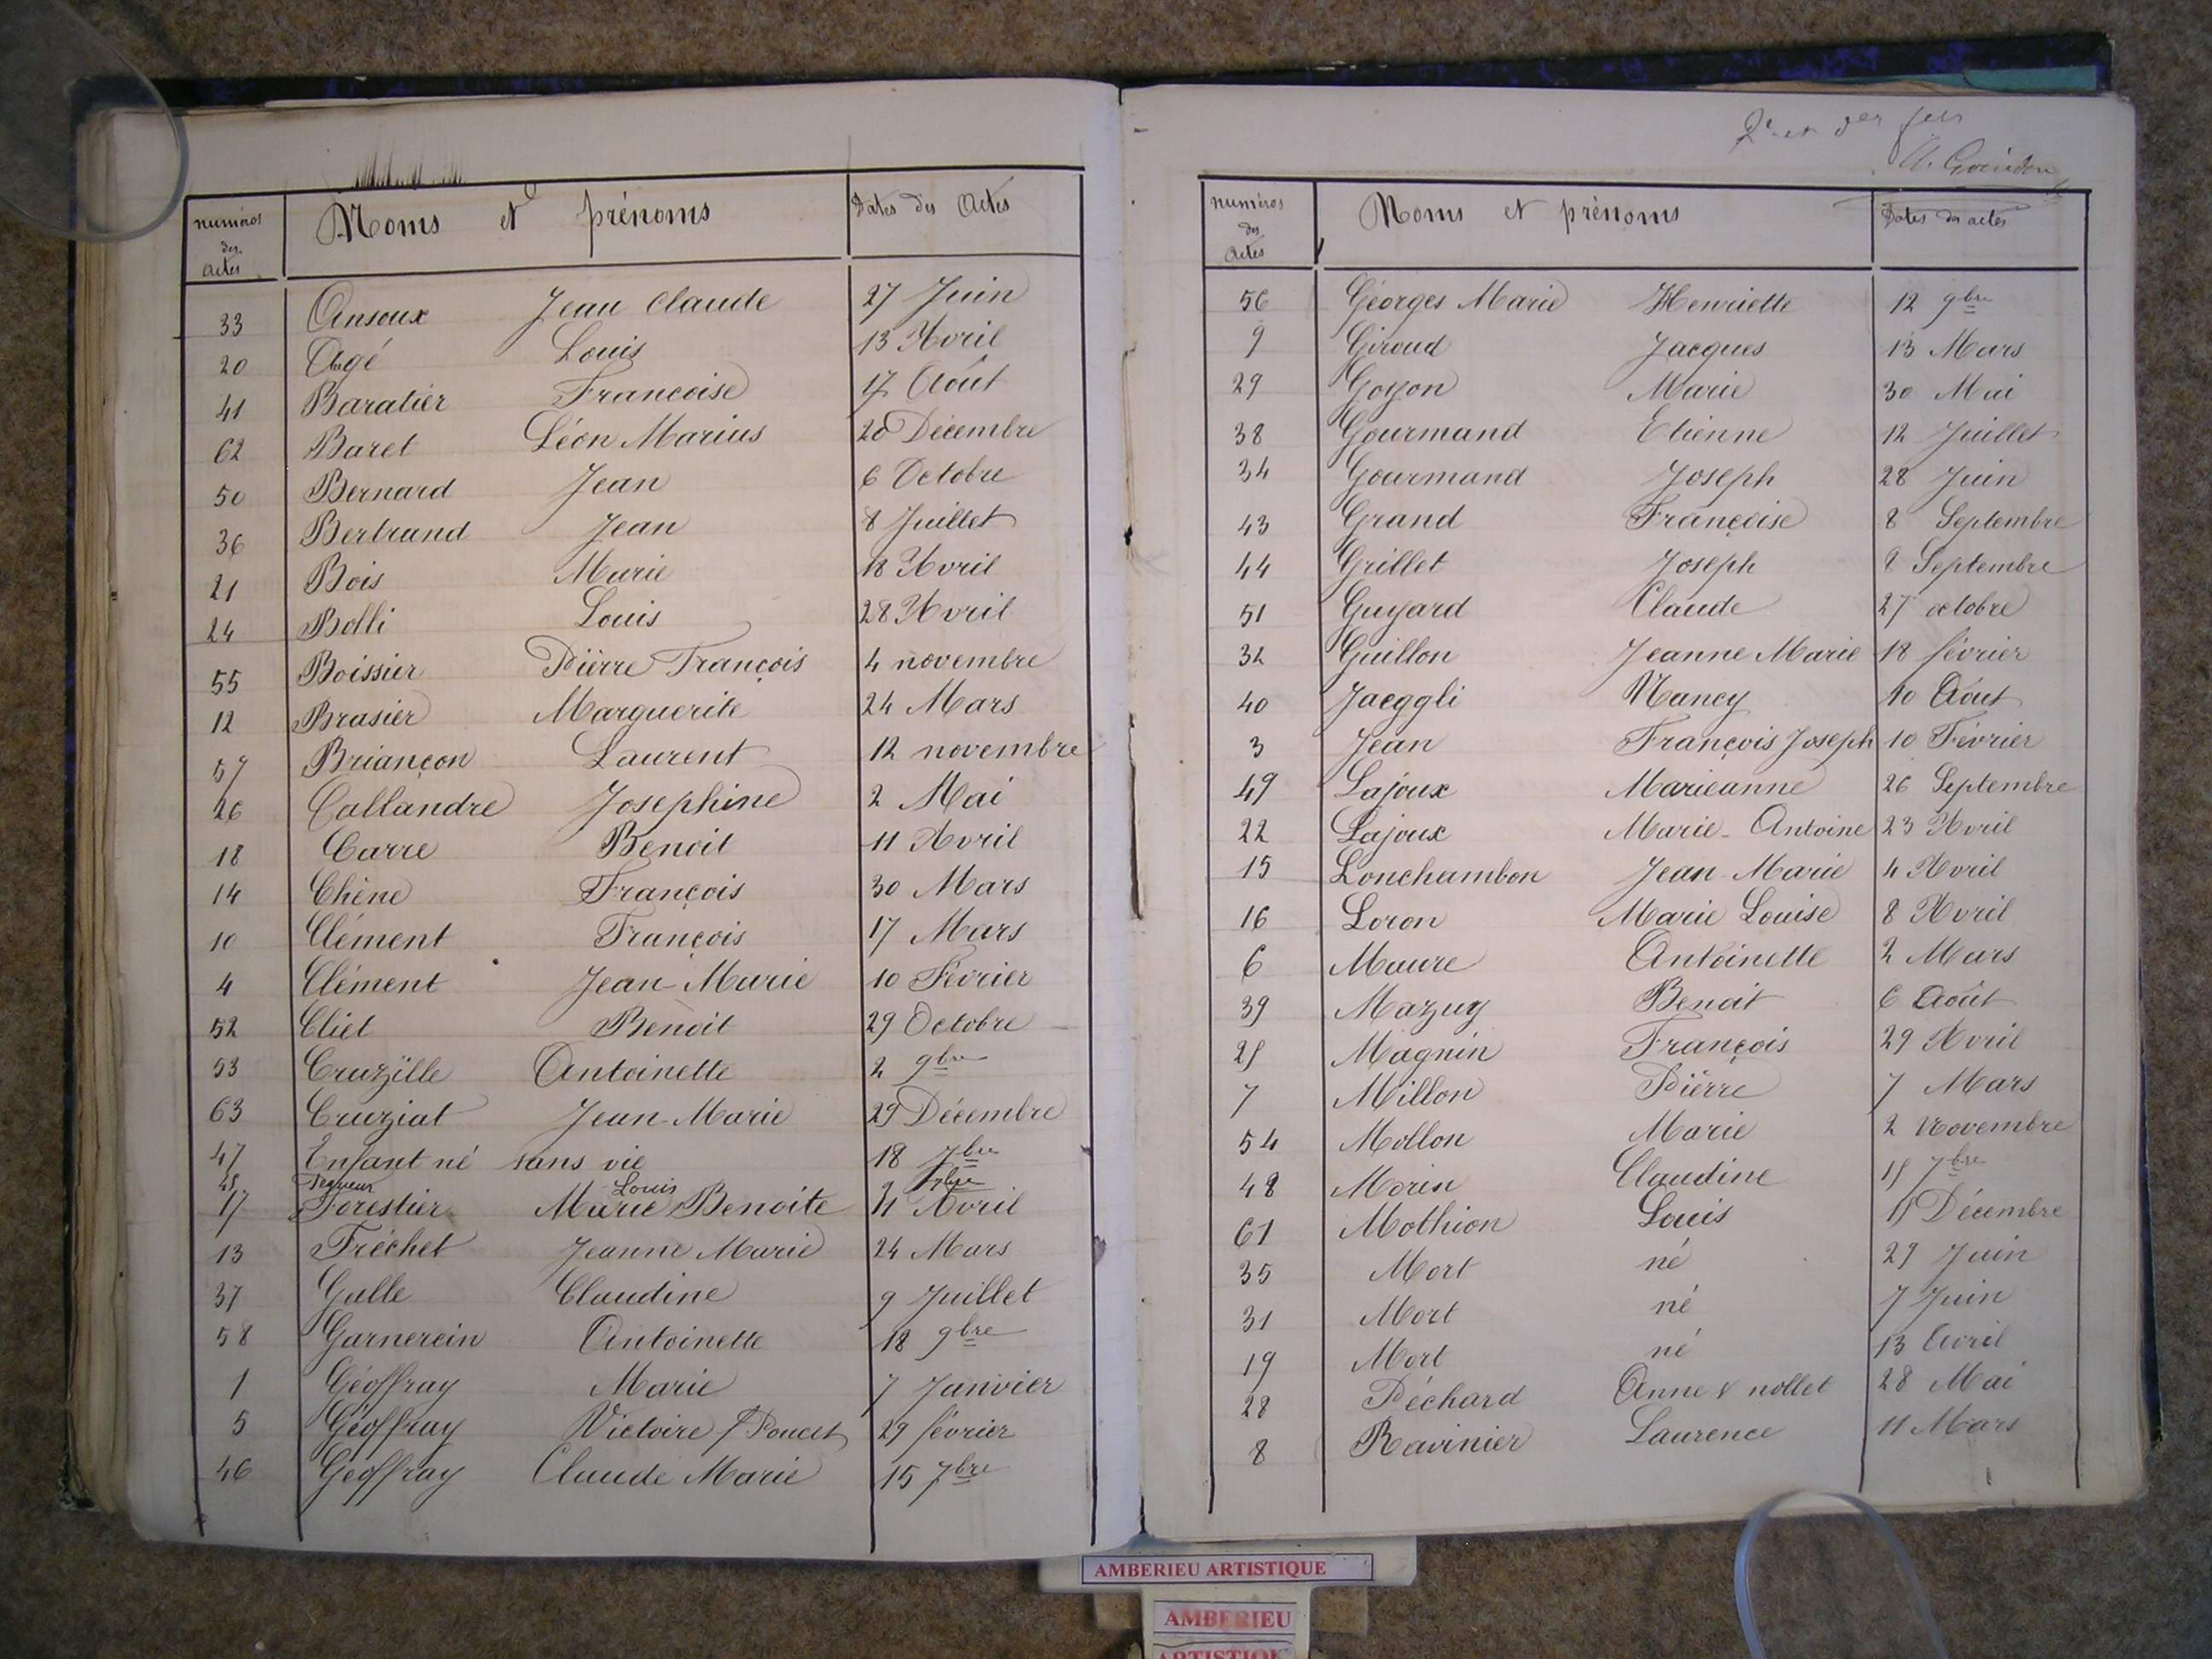 numéros des actes Noms et prénoms Dates des Actes
33 Ansoux Jean Claude 27 Juin
20 Agé Louis 13 Avril
41 Baratier Francoise 17 Août
62 Baret Léon Marius 20 Décembre
50 Bernard Jean 6 Octobre
36 Bertrand Jean 8 Juillet
21 Bois Marie 18 Avril
24 Bolli Louis 28 Avril
55 Boissier Pierre François 4 novembre
12 Brasier Marguerite 24 Mars
57 Briançon Laurent 12 novembre
26 Callandre Josephine 2 Mai
18 Carre Benoit 11 Avril
14 Chêne François 30 Mars
10 Clément François 17 Mars
4 Clément Jean-Marie 10 Février
52 Cliet Benoit 29 Octobre
53 Cruzille Antoinette 2 9bre
63 Cruziat Jean-Marie 29 Décembre
47 Enfant né sans vie 18 7bre
45 Louis 7bre
17 Forestier Marie Benoite 11 Avril
13 Fréchet Jeanne Marie 24 Mars
37 Galle Claudine 9 Juillet
58 Garnerein Antoinette 18 9bre
1 Géoffray Marie 7 Janvier
5 Géoffray Victoire f Poncet 29 février
46 Géoffray Claude Marie 15 7bre
numéros des Actes Noms et prénoms Dates des actes
56 Géorges Marie Henriette 12 9bre
9 Giroud Jacques 13 Mars
29 Goyon Marie 30 Mai
38 Gourmand Etienne 12 Juillet
34 Gourmand Joseph 28 Juin
43 Grand Françoise 8 Septembre
44 Grillet Joseph 8 Septembre
51 Guyard Claude 27 octobre
32 Guillon Jeanne Marie 18 février
40 Jaeggli Nancy 10 Août
3 Jean François Joseph 10 Février
49 Lajoux Marieanne 26 Septembre
22 Lajoux Marie-Antoine 23 Avril
15 Lonchambon Jean-Marie 4 Avril
16 Loron Marie Louise 8 Avril
6 Maure Antoinette 2 Mars
39 Mazuy Benoit 6 Août
25 Magnin François 29 Avril
7 Millon Pierre 7 Mars
54 Mollon Marie 2 Novembre
48 Morin Claudine 7bre
61 Mothion Louis Décembre
35 Mort né 29 Juin
31 Mort né 7 Juin
19 Mort né 13 Avril
28 Péchard Anne V nollet 28 Mai
8 Ravinier Laurence 11 Mars
AMBERIEU ARTISTIQUE
AMBERIEU
ARTISTIQUE